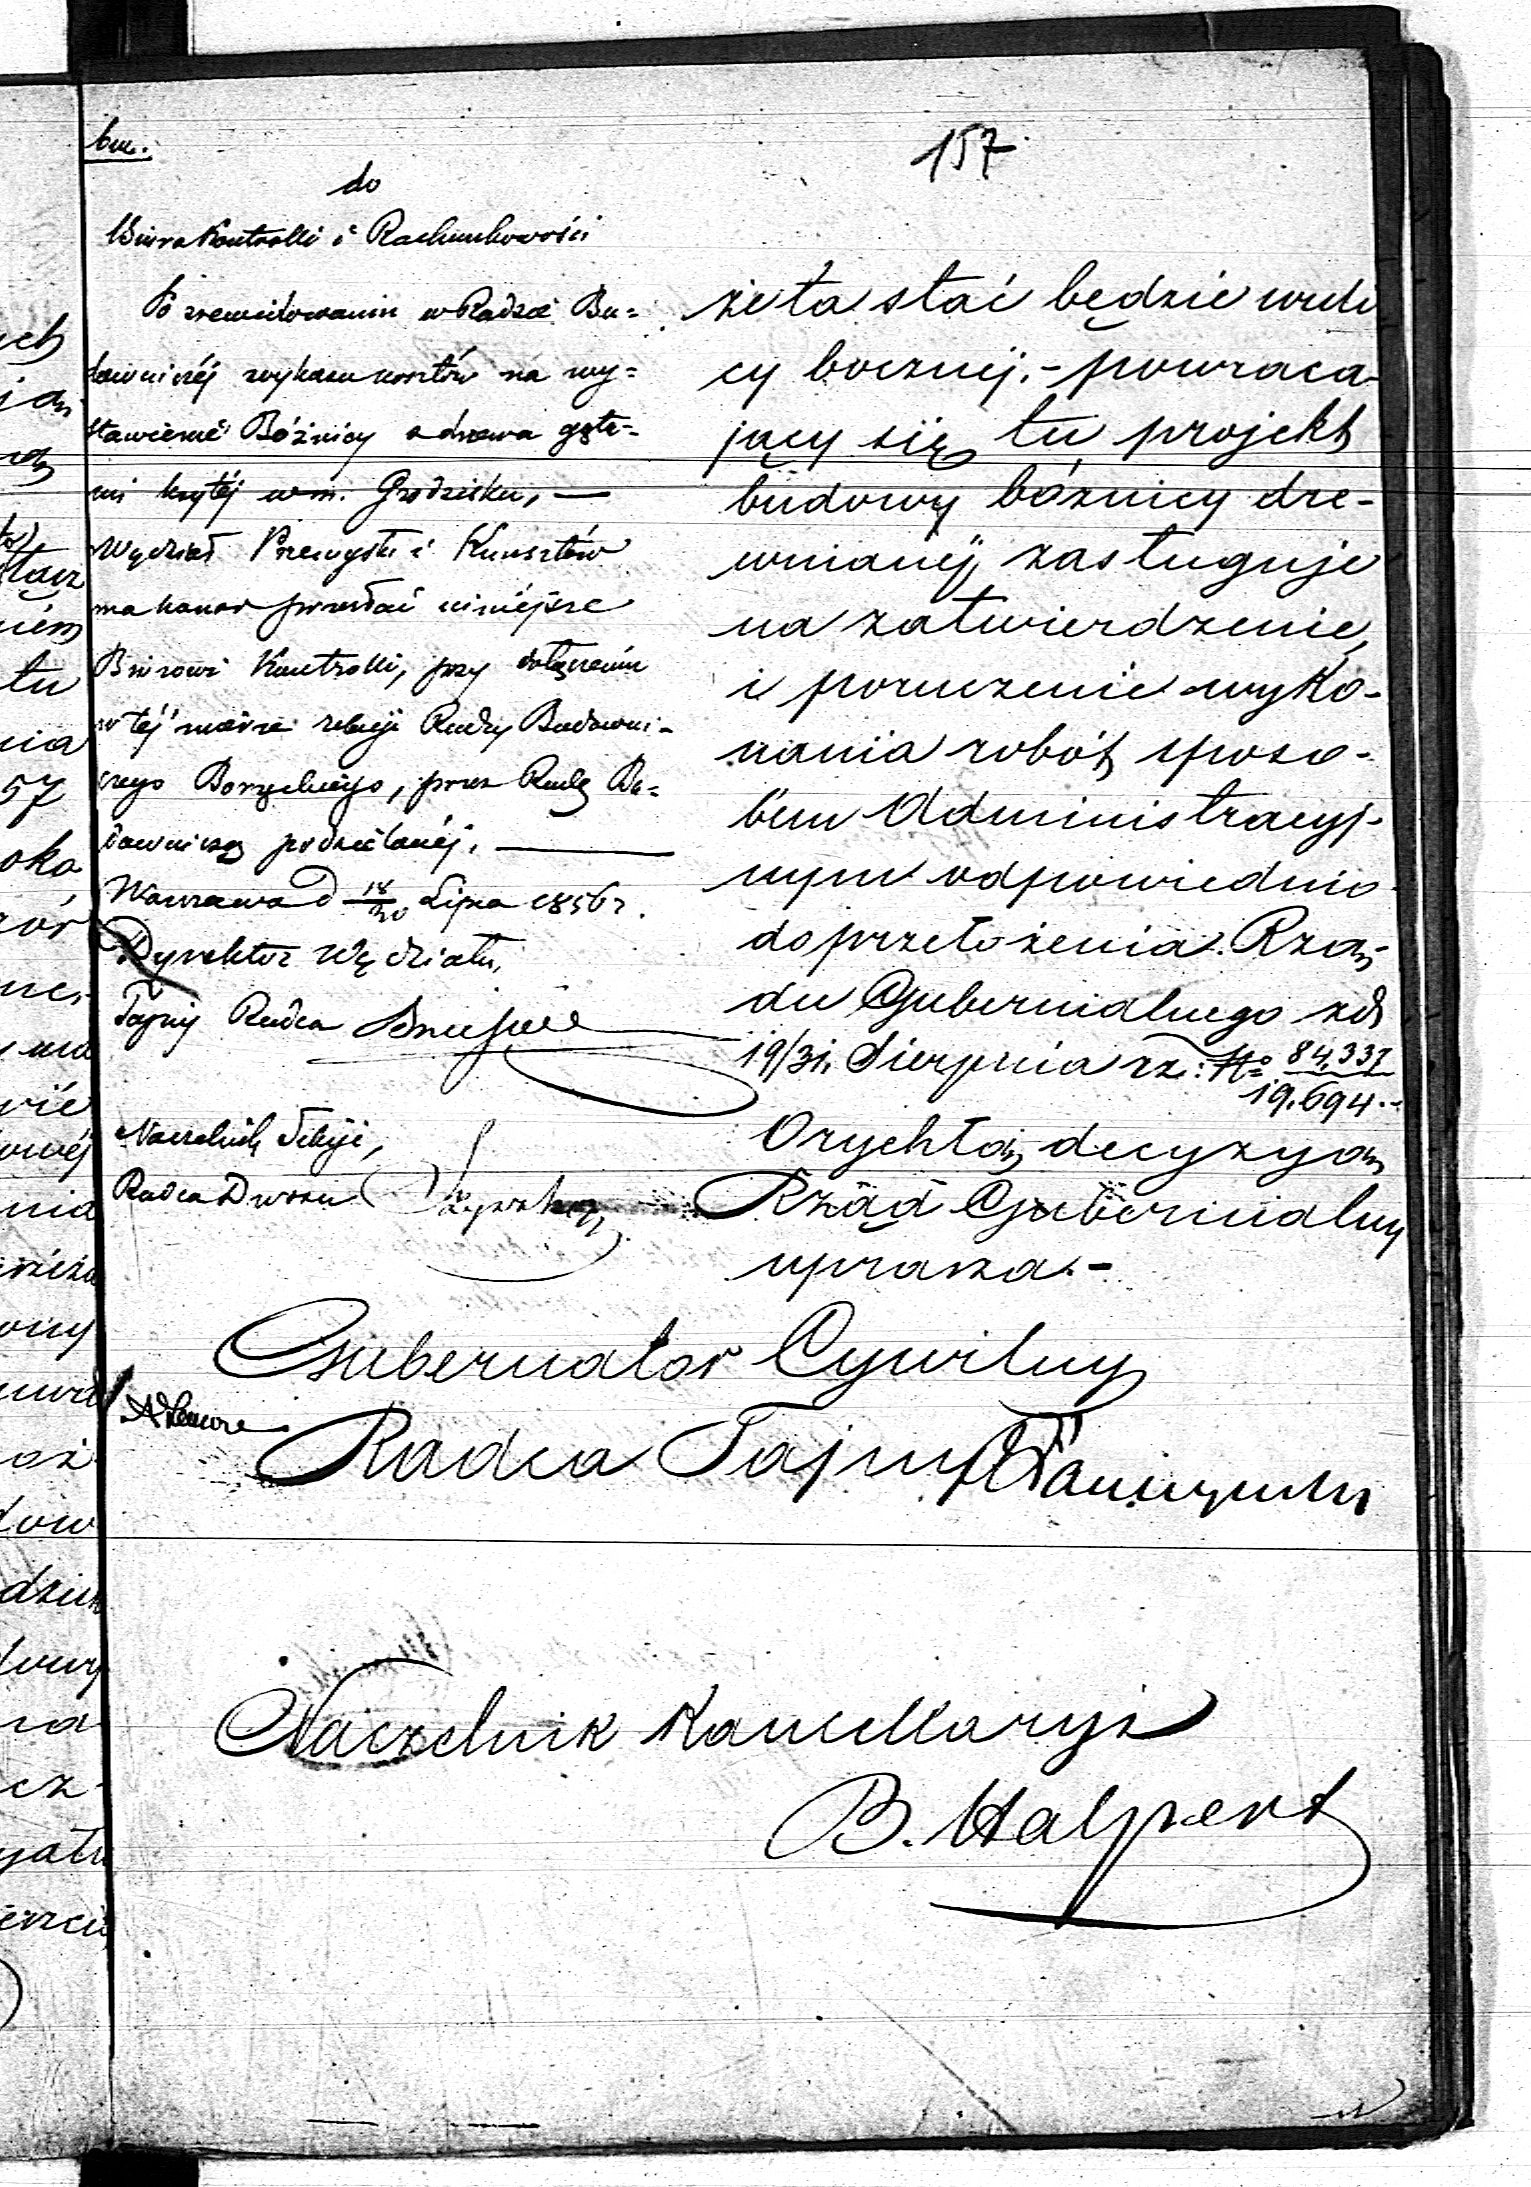 157
bm.
do
Biura Kontrolli i Rachunkowości
Po zrewidowaniu w Radzie Bu=
downiczéj wykazu kosztów na wy=
stawienie Bóżnicy z drzewa gętą=
mi krytéj w m. Grodzisku, —
Wydział Przemysłu i Kunsztów
ma honor przesłać niniéjsze
Biurowi Kontrolli, przy dołączeniu
w téj mierze relacji Radzy Budowni-
czego Boryckiego, przez Radę Bu=
downiczą podzielanéj. —
Warszawa d 18/30 Lipca 1856 r.
Dyrektor Wydziału,
Tajny Radca
Naczelnik Sekcji,
Radca Dworu
że ta stać będzie w uli
cy bocznej. - powraca-
jący się tu projekt
budowy bóżnicy dre-
wnianéj, zasługuje
na zatwierdzenie,
i poruczenie wyko-
nania robót sposo-
bem Administracyj-
nym odpowiednio
do przełożenia Rzą-
du Gubernialnego z d
19/31, Sierpnia r z: No 84,337
19.694..
O rychłą decyzyą
Rząd Gubernialny
uprasza. -
Gubernator Cywilny
Radca Tajny
Naczelnik Kancellaryi
B. Halpert